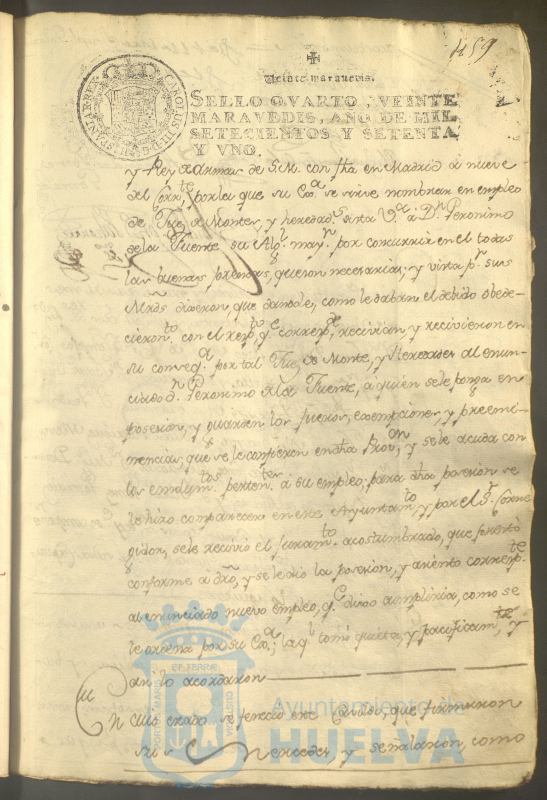 159
Veinte maravedis.
SELLO QVARTO, VEINTE
MARAVEDIS, AÑO DE MIL
SETECIENTOS Y SETENTA
Y VNO.
y Rey de Armas de S.M. con fha en Madrid a nueve
del Corr.te, por la que su Exa. se sirve nombrar en empleo
de Juez de Montes, y heredad.s de esta V.a a D.n Geronimo
de la Fuente su Alg.l may.r por concurrir en el todas
las buenas prendas, que son necesarias, y vista p.r sus
Mrds dixeron, que dandole, como le daban el debido obede-
cimien.to con el resp.to q.e corresp.de, recivian, y recivieron en
su conseq.a por tal Juez de Monte, y Heredades al enun-
ciado D.n Geronimo de la Fuente, a quien se le ponga en
posesion, y guarden los fueros, exempciones, y preemi-
nencias, que se le confieren en dha Prov.on y se le acuda con
los emolum.tos perten.tes a su empleo; para dha posesion se
le hizo comparecer en este Ayuntam.to y por el S.r Corre
gidor, se le recivio el juram.to acostumbrado, que
conforme a dro, y se le dio la posesion, y asiento corresp.te
al enunciado nuevo empleo, q.e dixo cumpliria, como se
le ordena por su Exa; la q.l tomó quieta, y pacificam.te y
asi lo acordaron
En cuio estado se fenecio este Cavildo, que firmaron
sus Mercedes, y señalaron, como
PORTUS MARIS ET TERRAE CUSTODIA
Ayuntamiento de
HUELVA